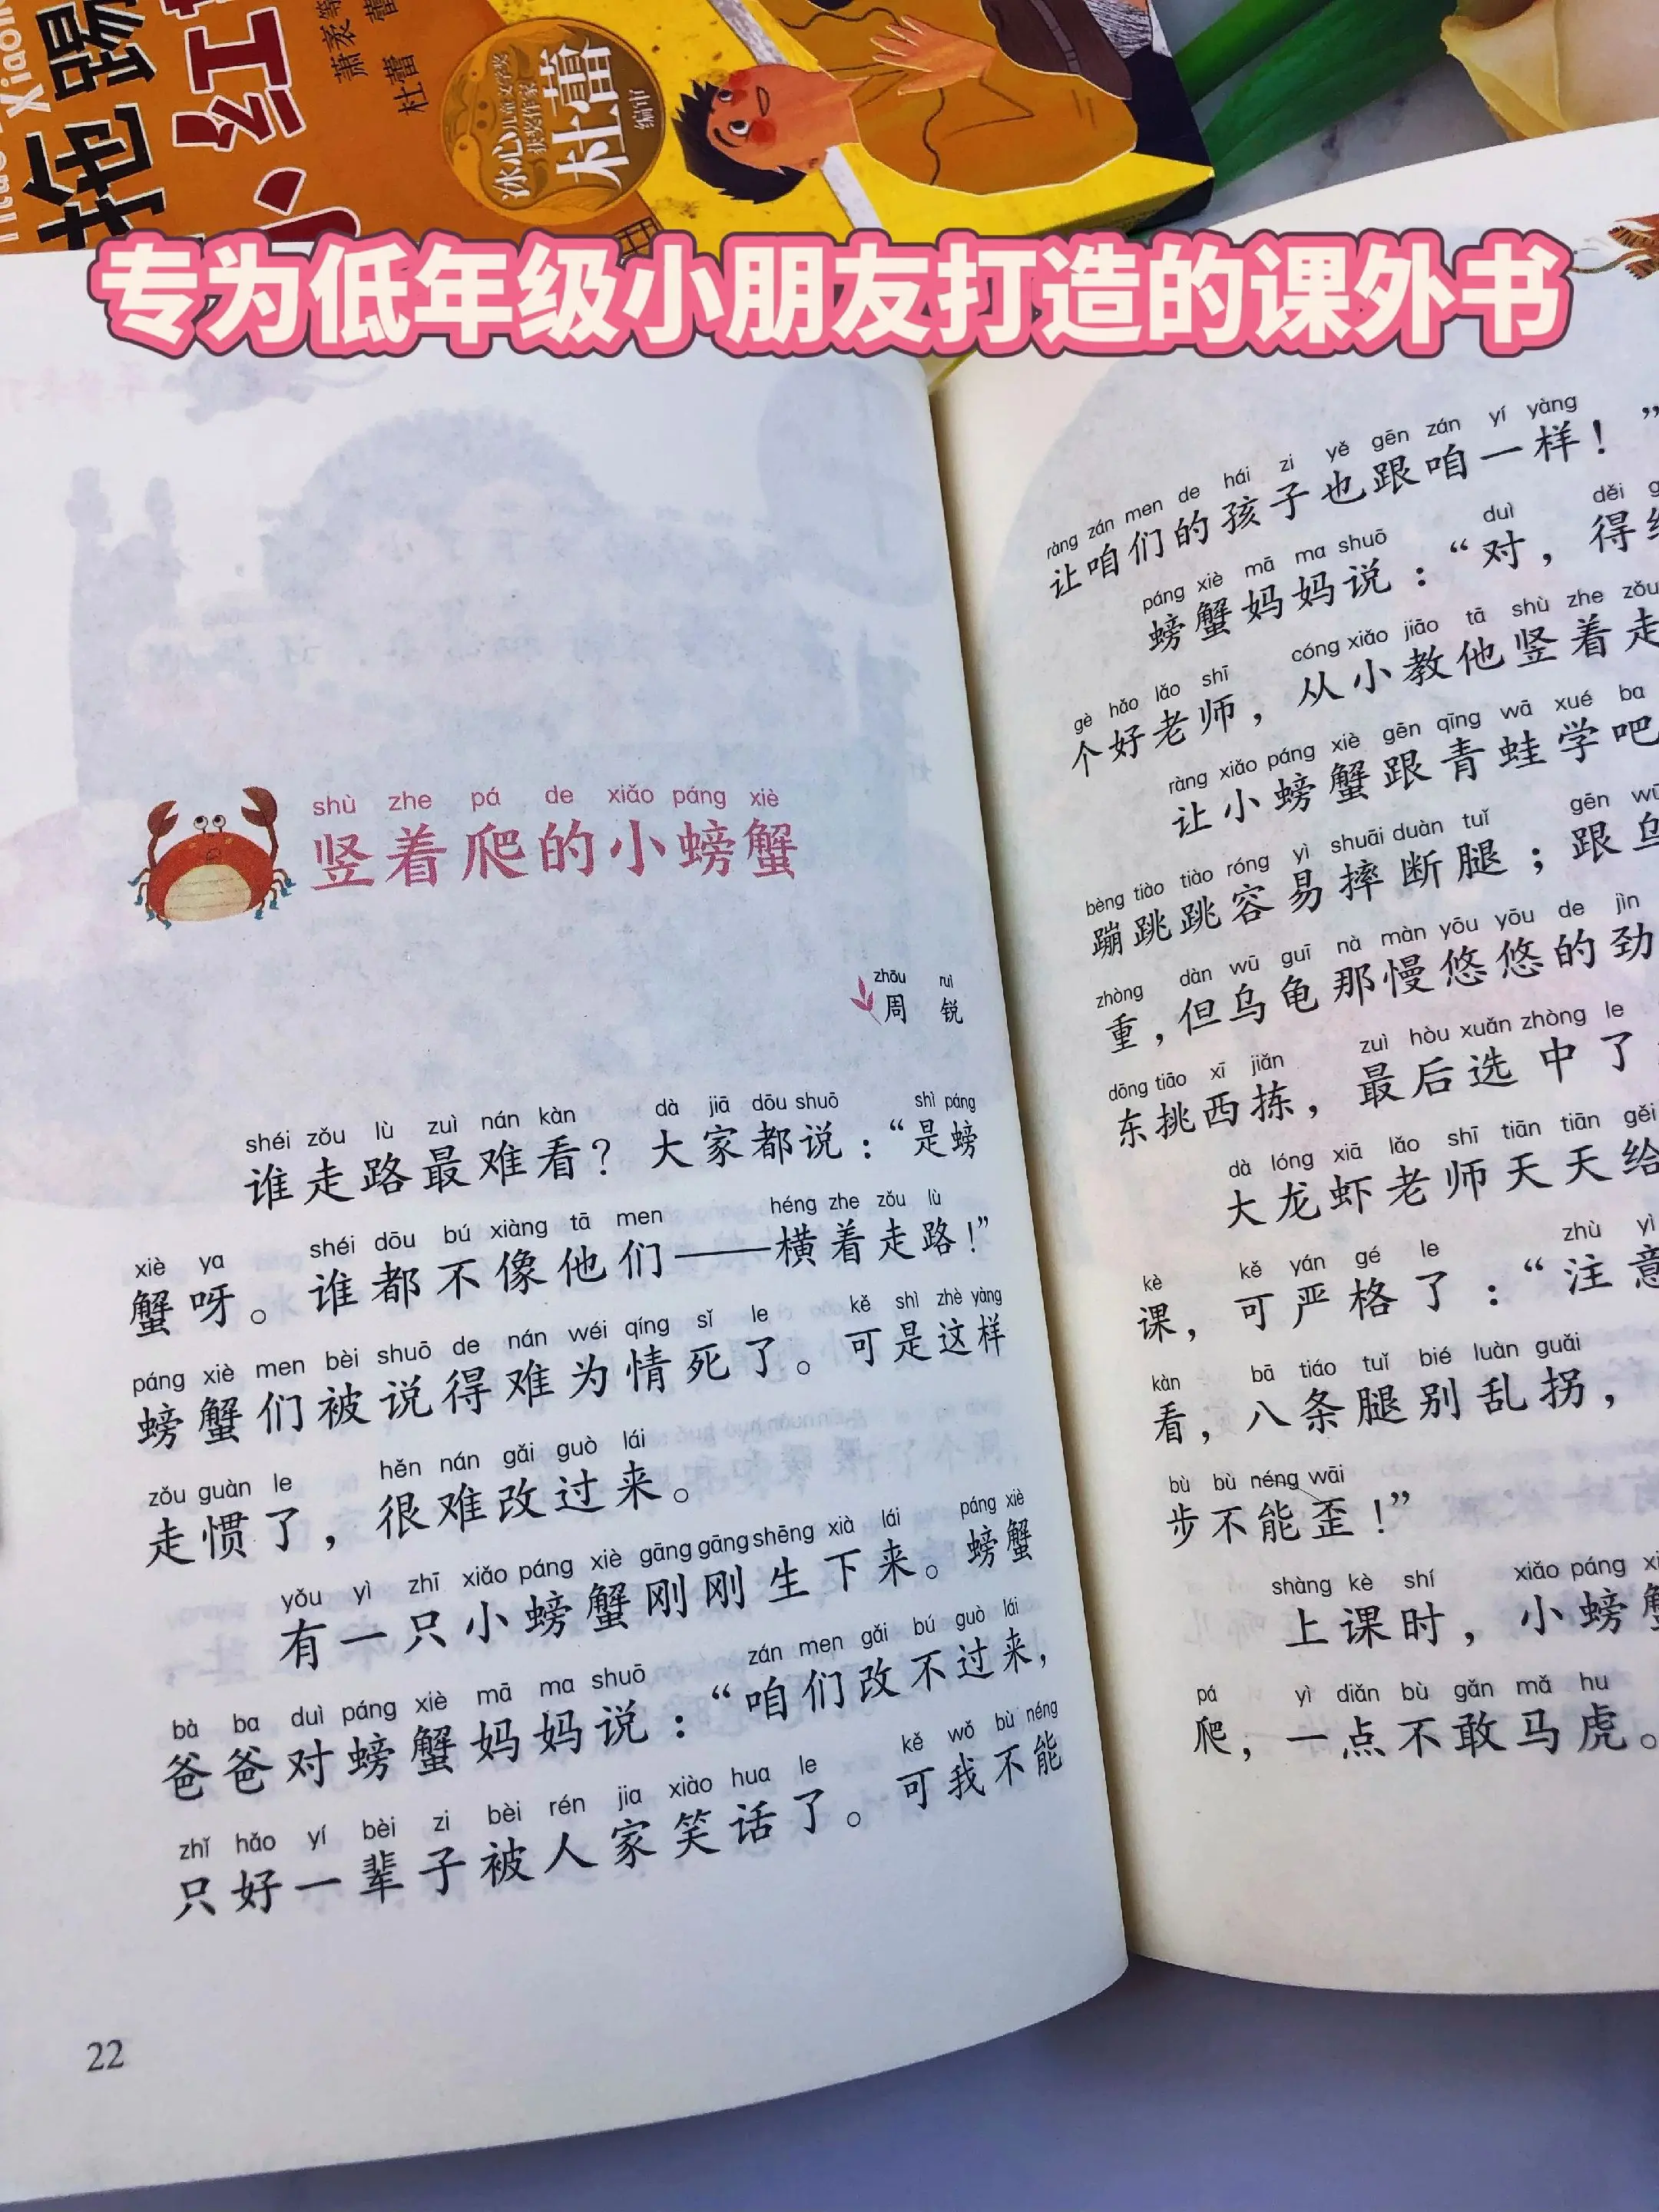 拖踢
小红
萧袤等
杜蕾
冰心儿童文学奖
获奖作家
杜蕾
编审
专为低年级小朋友打造的课外书
shù zhe pá de xiǎo páng xiè
竖着爬的小螃蟹
zhōu ruì
周 锐
shéi zǒu lù zuì nán kàn dà jiā dōu shuō shì páng
谁走路最难看？大家都说：“是螃
xiè ya shéi dōu bú xiàng tā men héng zhe zǒu lù
蟹呀。谁都不像他们——横着走路！”
páng xiè men bèi shuō de nán wéi qíng sǐ le kě shì zhè yàng
螃蟹们被说得难为情死了。可是这样
zǒu guàn le hěn nán gǎi guò lái
走惯了，很难改过来。
yǒu yì zhī xiǎo páng xiè gāng gāng shēng xià lái páng xiè
有一只小螃蟹刚刚生下来。螃蟹
bà ba duì páng xiè mā ma shuō zán men gǎi bú guò lái
爸爸对螃蟹妈妈说：“咱们改不过来，
zhǐ hǎo yí bèi zi bèi rén jia xiào hua le kě wǒ bù néng
只好一辈子被人家笑话了。可我不能
22
ràng zán men de hái zi yě gēn zán yí yàng
让咱们的孩子也跟咱一样！”
páng xiè mā ma shuō duì děi
螃蟹妈妈说：“对，得给
gè hǎo lǎo shī cóng xiǎo jiāo tā shù zhe zǒu
个好老师，从小教他竖着走
ràng xiǎo páng xiè gēn qīng wā xué ba
让小螃蟹跟青蛙学吧
bèng tiào tiào róng yì shuāi duàn tuǐ gēn wū
蹦跳跳容易摔断腿；跟乌
zhòng dàn wū guī nà màn yōu yōu de jìn
重，但乌龟那慢悠悠的劲
dōng tiāo xī jiǎn zuì hòu xuǎn zhòng le
东挑西拣，最后选中了
dà lóng xiā lǎo shī tiān tiān gěi
大龙虾老师天天给
kè kě yán gé le zhù yì
课，可严格了：“注意
kàn bā tiáo tuǐ bié luàn guǎi
看，八条腿别乱拐，
bù bù néng wāi
步不能歪！”
shàng kè shí xiǎo páng
上课时，小螃蟹
pá yì diǎn bù gǎn mǎ hu
爬，一点不敢马虎。